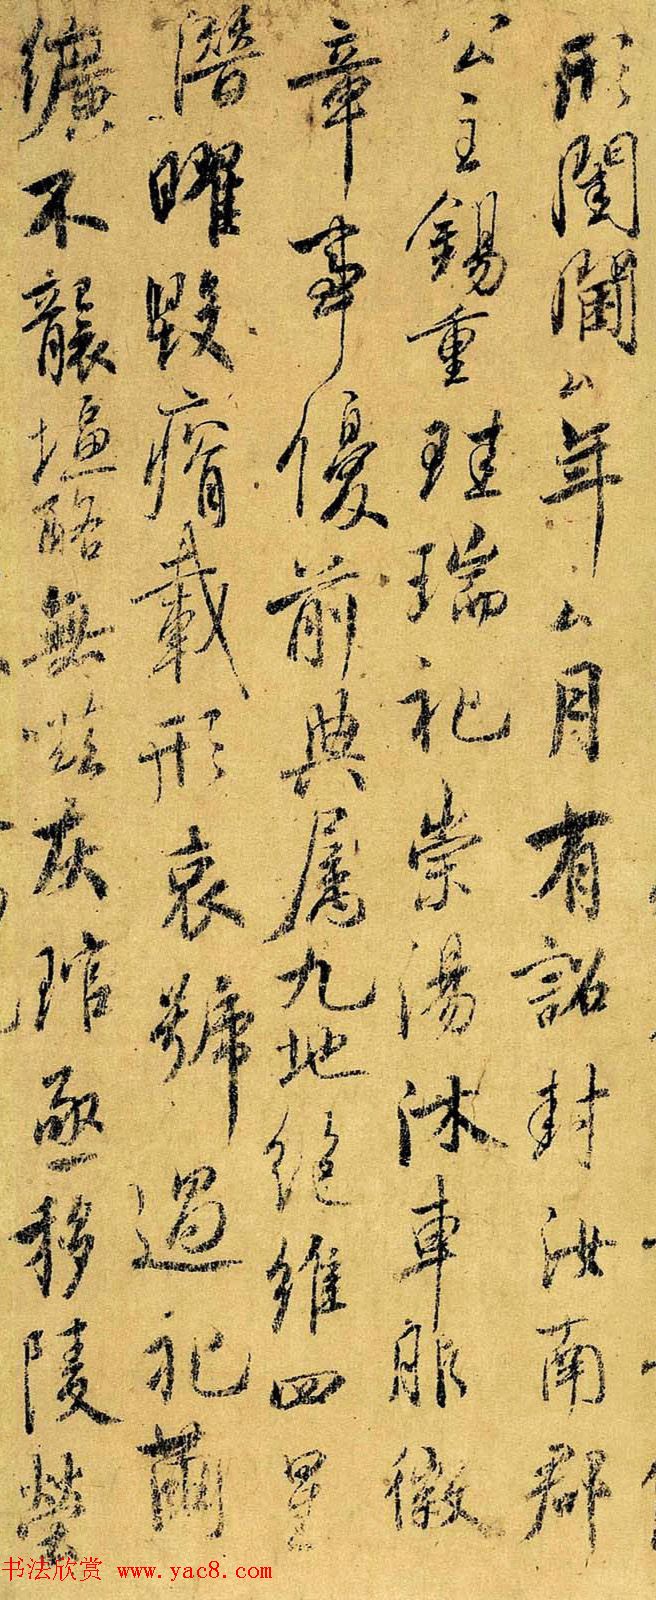 形閨閫厶年厶月有詔封汝南郡
公主錫重珪瑞礼崇湯沐車服徽
章事優前典屬九地絕維四星
潛曜毀瘠載形哀號過礼繭
纊不襲塩酪無嗞灰琯亟移陵塋
书法欣赏 www.yac8.com